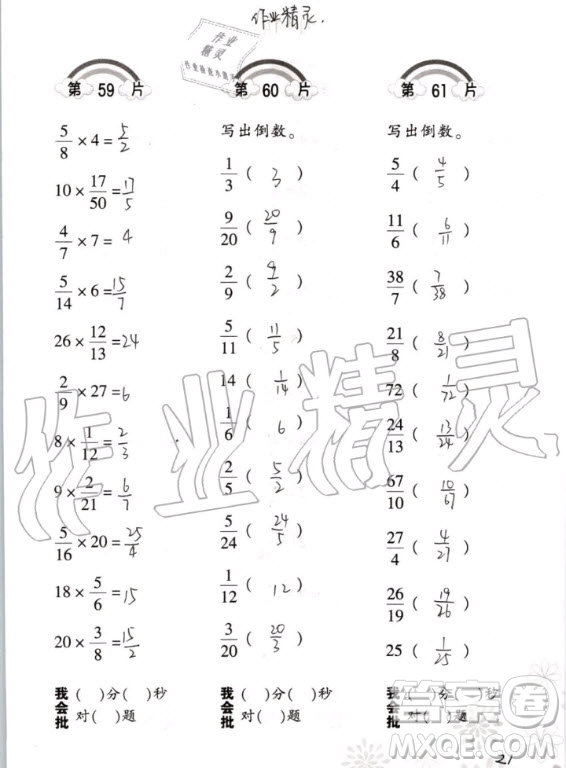 作业精灵.
作业
精灵
第 59 片
5/8 × 4 = 5/2
10 × 17/50 = 17/5
4/7 × 7 = 4
5/14 × 6 = 15/7
26 × 12/13 = 24
2/9 × 27 = 6
8 × 1/12 = 2/3
9 × 2/21 = 6/7
5/16 × 20 = 25/4
18 × 5/6 = 15
20 × 3/8 = 15/2
我会批
( )分( )秒
对( )题
第 60 片
写出倒数。
1/3 ( 3 )
9/20 ( 20/9 )
2/9 ( 9/2 )
5/11 ( 11/5 )
14 ( 1/14 )
1/6 ( 6 )
2/5 ( 5/2 )
5/24 ( 24/5 )
1/12 ( 12 )
3/20 ( 20/3 )
我会批
( )分( )秒
对( )题
第 61 片
写出倒数。
5/4 ( 4/5 )
11/6 ( 6/11 )
38/7 ( 7/38 )
21/8 ( 8/21 )
72 ( 1/72 )
24/13 ( 13/24 )
67/10 ( 10/67 )
27/4 ( 4/27 )
26/19 ( 19/26 )
25 ( 1/25 )
我会批
( )分( )秒
对( )题
21
作业精灵
答案圈
MXQE.COM